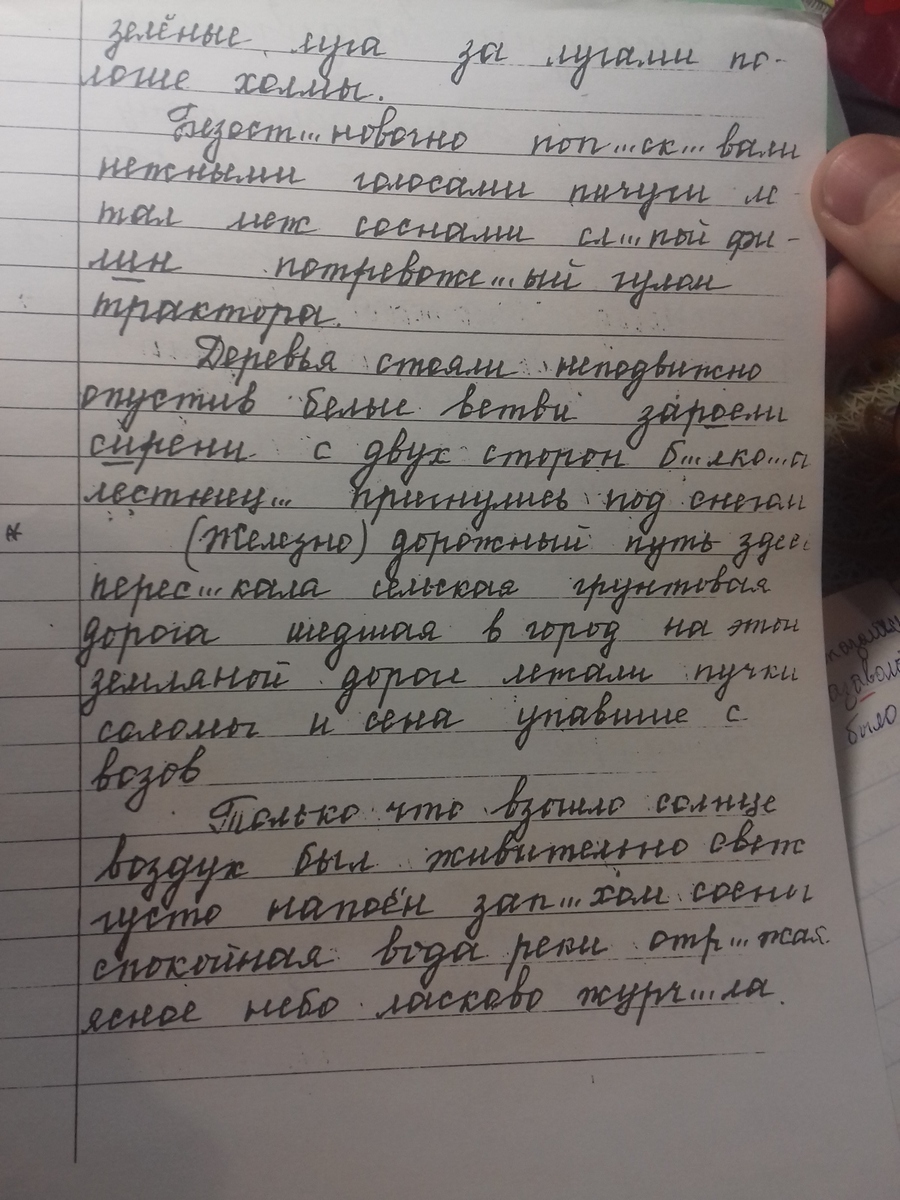 зелёные луга за лугами по-
логие холмы.
Безост...новочно поп...ск...вали
нежными голосами пичуги ле-
тал меж соснами сл...пой фи-
лин потревоже...ый гулом
трактора.
Деревья стояли неподвижно
опустив белые ветви заросли
сирени с двух сторон б...лко...а
лестниц... пригнулись под снегом
(Железно) дорожный путь здес
перес...кала сельская грунтовая
дорога шедшая в город на этой
земляной дороге лежали пучки
соломы и сена упавшие с
возов
Только что взошло солнце
воздух был живительно свеж
густо напоён зап...хом сосны
спокойная вода реки отр...жая
ясное небо ласково журч...ла.
было